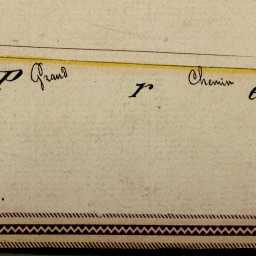 Grand Chemin
P r e